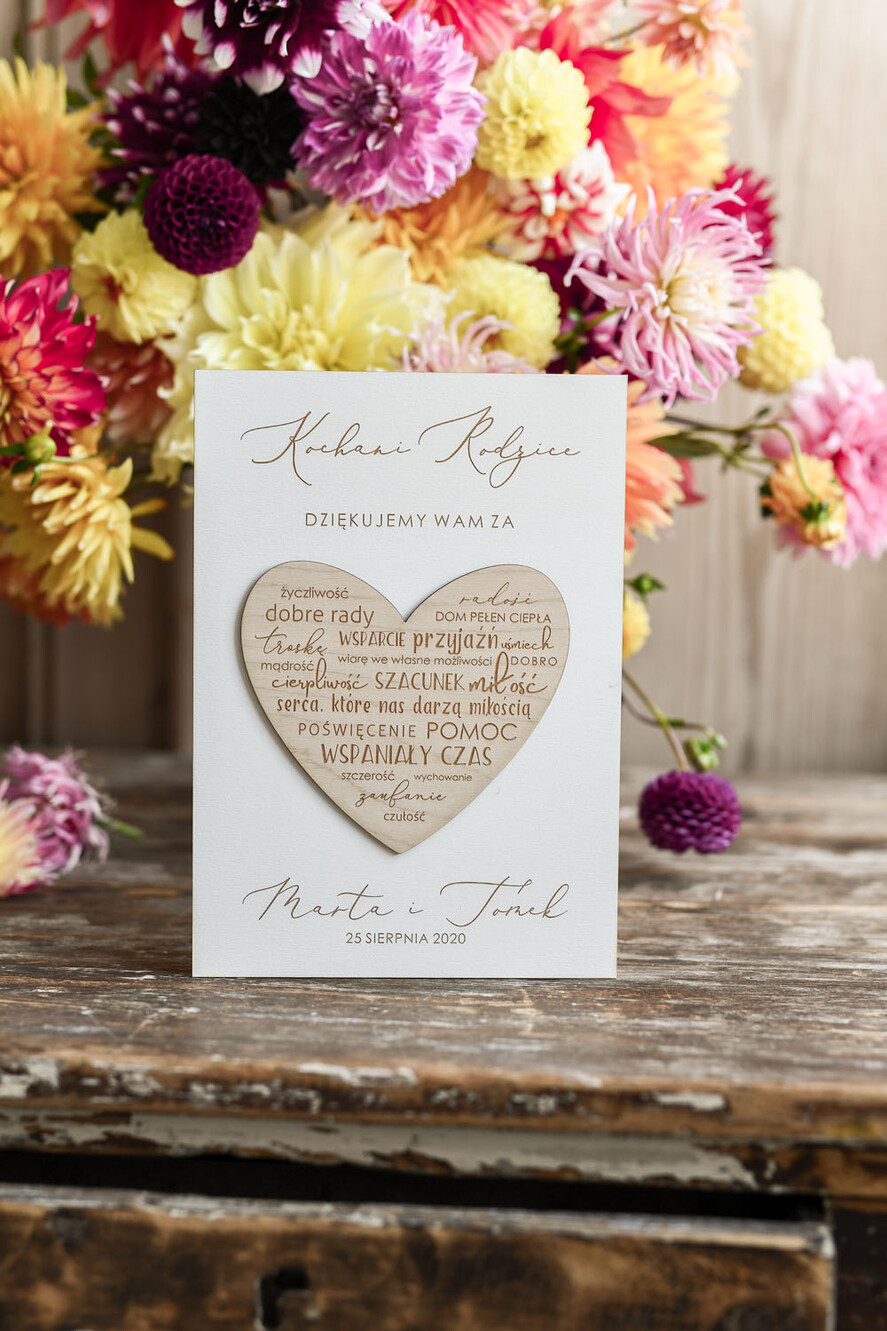 Kochani Rodzice
DZIĘKUJEMY WAM ZA
życzliwość radość
dobre rady DOM PEŁEN CIEPŁA
troskę WSPARCIE przyjaźń uśmiech
mądrość wiarę we własne możliwości DOBRO
cierpliwość SZACUNEK miłość
serca, które nas darzą miłością
POŚWIĘCENIE POMOC
WSPANIAŁY CZAS
szczerość wychowanie
zaufanie
czułość
Marta i Tomek
25 SIERPNIA 2020